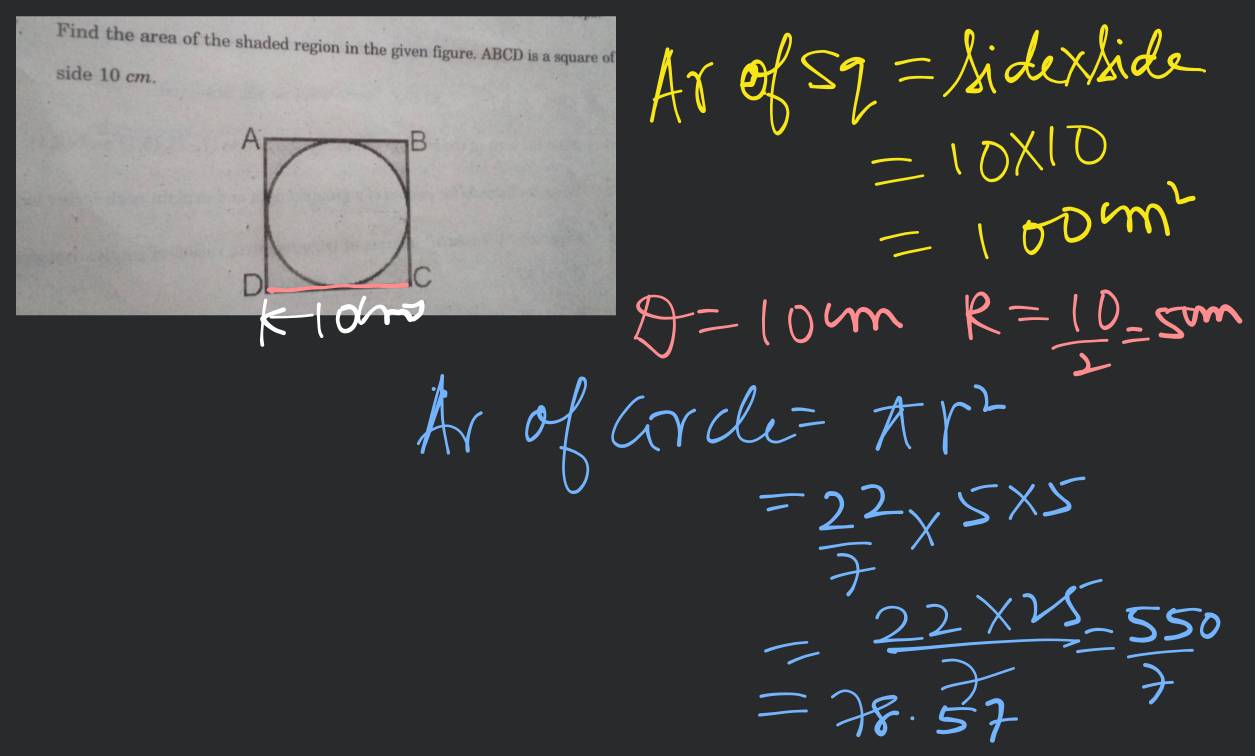 Find the area of the shaded region in the given figure. ABCD is a square of
side 10 cm.
A B
D C
10cm
Ar of sq = side×side
= 10×10
= 100cm²
D = 10cm R = 10/2 = 5cm
Ar of Circle = πr²
= 22/7 × 5×5
= 22×25/7 = 550/7
= 78.57